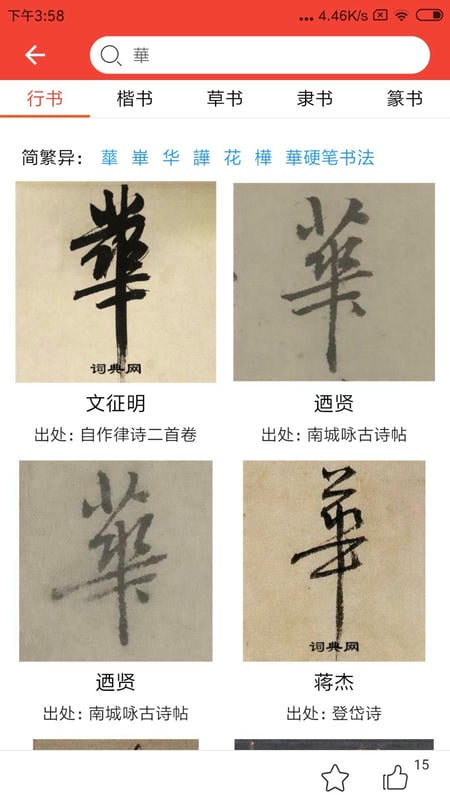 下午3:58 ... 4.46K/s
華
行书 楷书 草书 隶书 篆书
简繁异： 蕐 崋 华 譁 花 樺 華硬笔书法
華 華
词典网
文征明 迺贤
出处：自作律诗二首卷 出处：南城咏古诗帖
華 華
词典网
迺贤 蒋杰
出处：南城咏古诗帖 出处：登岱诗
15